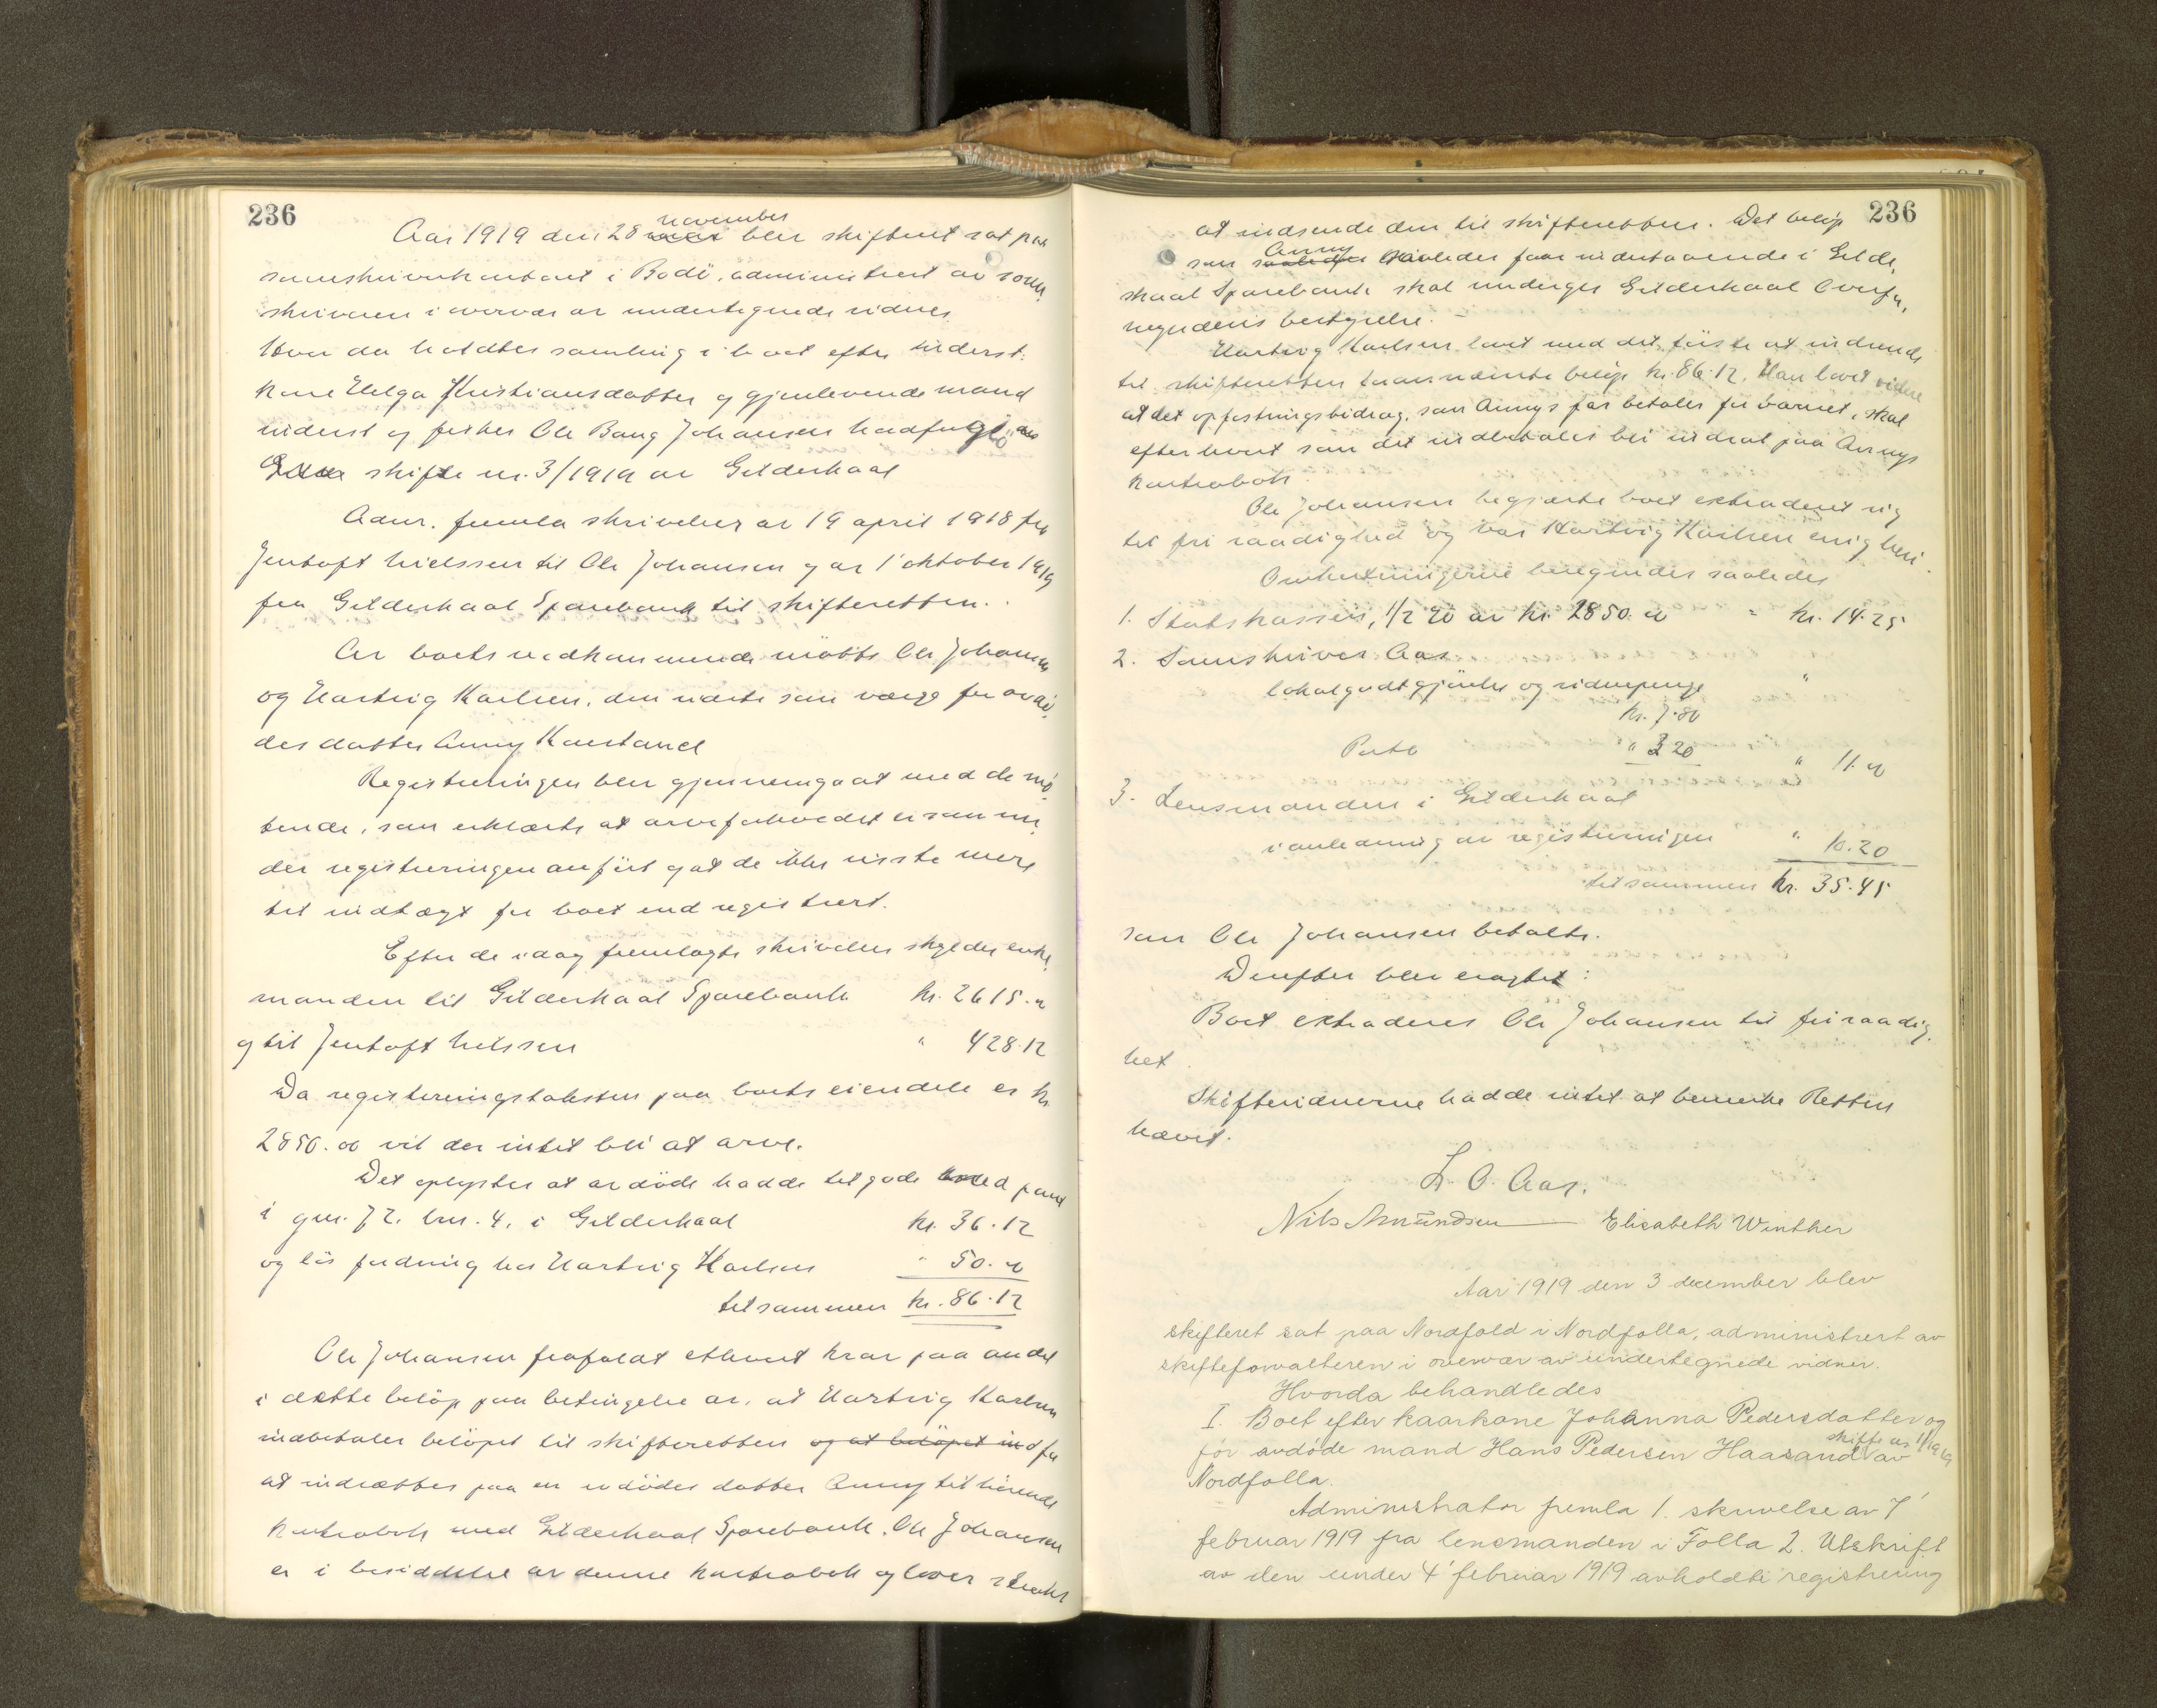 236
Aar 1919 den 28 november blev skifteret sat paa
sorenskriverkontoret i Bodö, administrert av soren,
skriveren i overvær av undertegnede vidner.
Hvor da holdtes samling i boet efter inderst,
kone Helga Kristiansdatter og gjenlevende mand
inderst og fisker Ole Bang Johansen
skifte nr. 3/1919 av Gildeskaal
Adm. fremla skrivelser av 19 april 1918 fra
Jentoft Nielssen til Ole Johansen og av 1' oktober 1919
fra Gildeskaal Sparebank til skifteretten.
Av boets vedkommende mötte Ole Johansen
og Hartvig Karlsen, den siste som værge for avdö,
des datter Anny Kaarstand
Registreringen blev gjennemgaat med de mö,
tende, som erklærte at arveforholdet er som un,
der registreringen anfört og at de ikke visste mere
til indtægt for boet end registrert.
Efter de idag fremlagte skrivelser skylder enke,
manden til Gildeskaal Sparebank kr. 2615.00
og til Jentoft Nilssen " 428.12
Da registreringstaksten paa boets eiendele er kr.
2850.00 vil der intet bli at arve.
Det oplystes at avdöde hadde tilgode med pant
i gnr. 72. brn. 4. i Gildeskaal kr. 36.12
og lös fordring hos Hartvig Karlsen " 50.00
tilsammen kr. 86.12
Ole Johansen frafaldt ethvert krav paa andel
i dette belöp paa betingelse av, at Hartvig Karlsen
indbetaler belöpet til skifteretten og at belöpet ind for
at indsættes paa en avdödes datter Anny tilhörende
kontrabok med Gildeskaal Sparebank. Ole Johansen
er i besiddelse av denne kontrabok og lover straks
236
at indsende den til skifteretten. Det belöp
som Anny saaledes faar indestaaende i Gilde,
skaal Sparebank skal undergis Gildeskaal Overfor,
mynderis bestyrelse. -
Hartvig Karlsen lovet med det förste at indsende
til skifteretten forannævnte belöp kr. 86.12. Han lovet videre
at det opfostringsbidrag, som Annys far betaler for barnet, skal
efterhvert som det indbetales bli indsat paa Annys
kontrabok.
Ole Johansen begjærte boet extradert sig
til fri raadighed og var Hartvig Karlsen enig heri.
Omkostningerne beregnedes saaledes
1. Statskassen, 1/2 % av kr. 2850.00 = kr. 14.25
2. Sorenskriver Aas
lokalgodtgjörelse og vidnepenge "
kr. 7.80
Porto " 3 20 " 11.00
3. Lensmanden i Gildeskaal
i anledning av registreringen " 10.20
tilsammen kr. 35.45
som Ole Johansen betalte.
Derefter blev eragtet:
Boet extraderes Ole Johansen til fri raadig,
het.
Skiftevidnerne hadde intet at bemerke Retten
hævet.
L. O. Aas.
Nils Amundsen Elisabeth Winther
Aar 1919 den 3 december blev
skifteret sat paa Nordfold i Nordfolla, administrert av
skifteforvalteren i overvær av undertegnede vidner.
Hvorda behandledes
I. Boet efter kaarkone Johanna Pedersdatter og
för avdöde mand Hans Pedersen Haasand skifte nr 1/1919 av
Nordfolla.
Administrator fremla 1. skrivelse av 7'
februar 1919 fra lensmanden i Folla 2. Utskrift
av den under 4' februar 1919 avholdte registrering